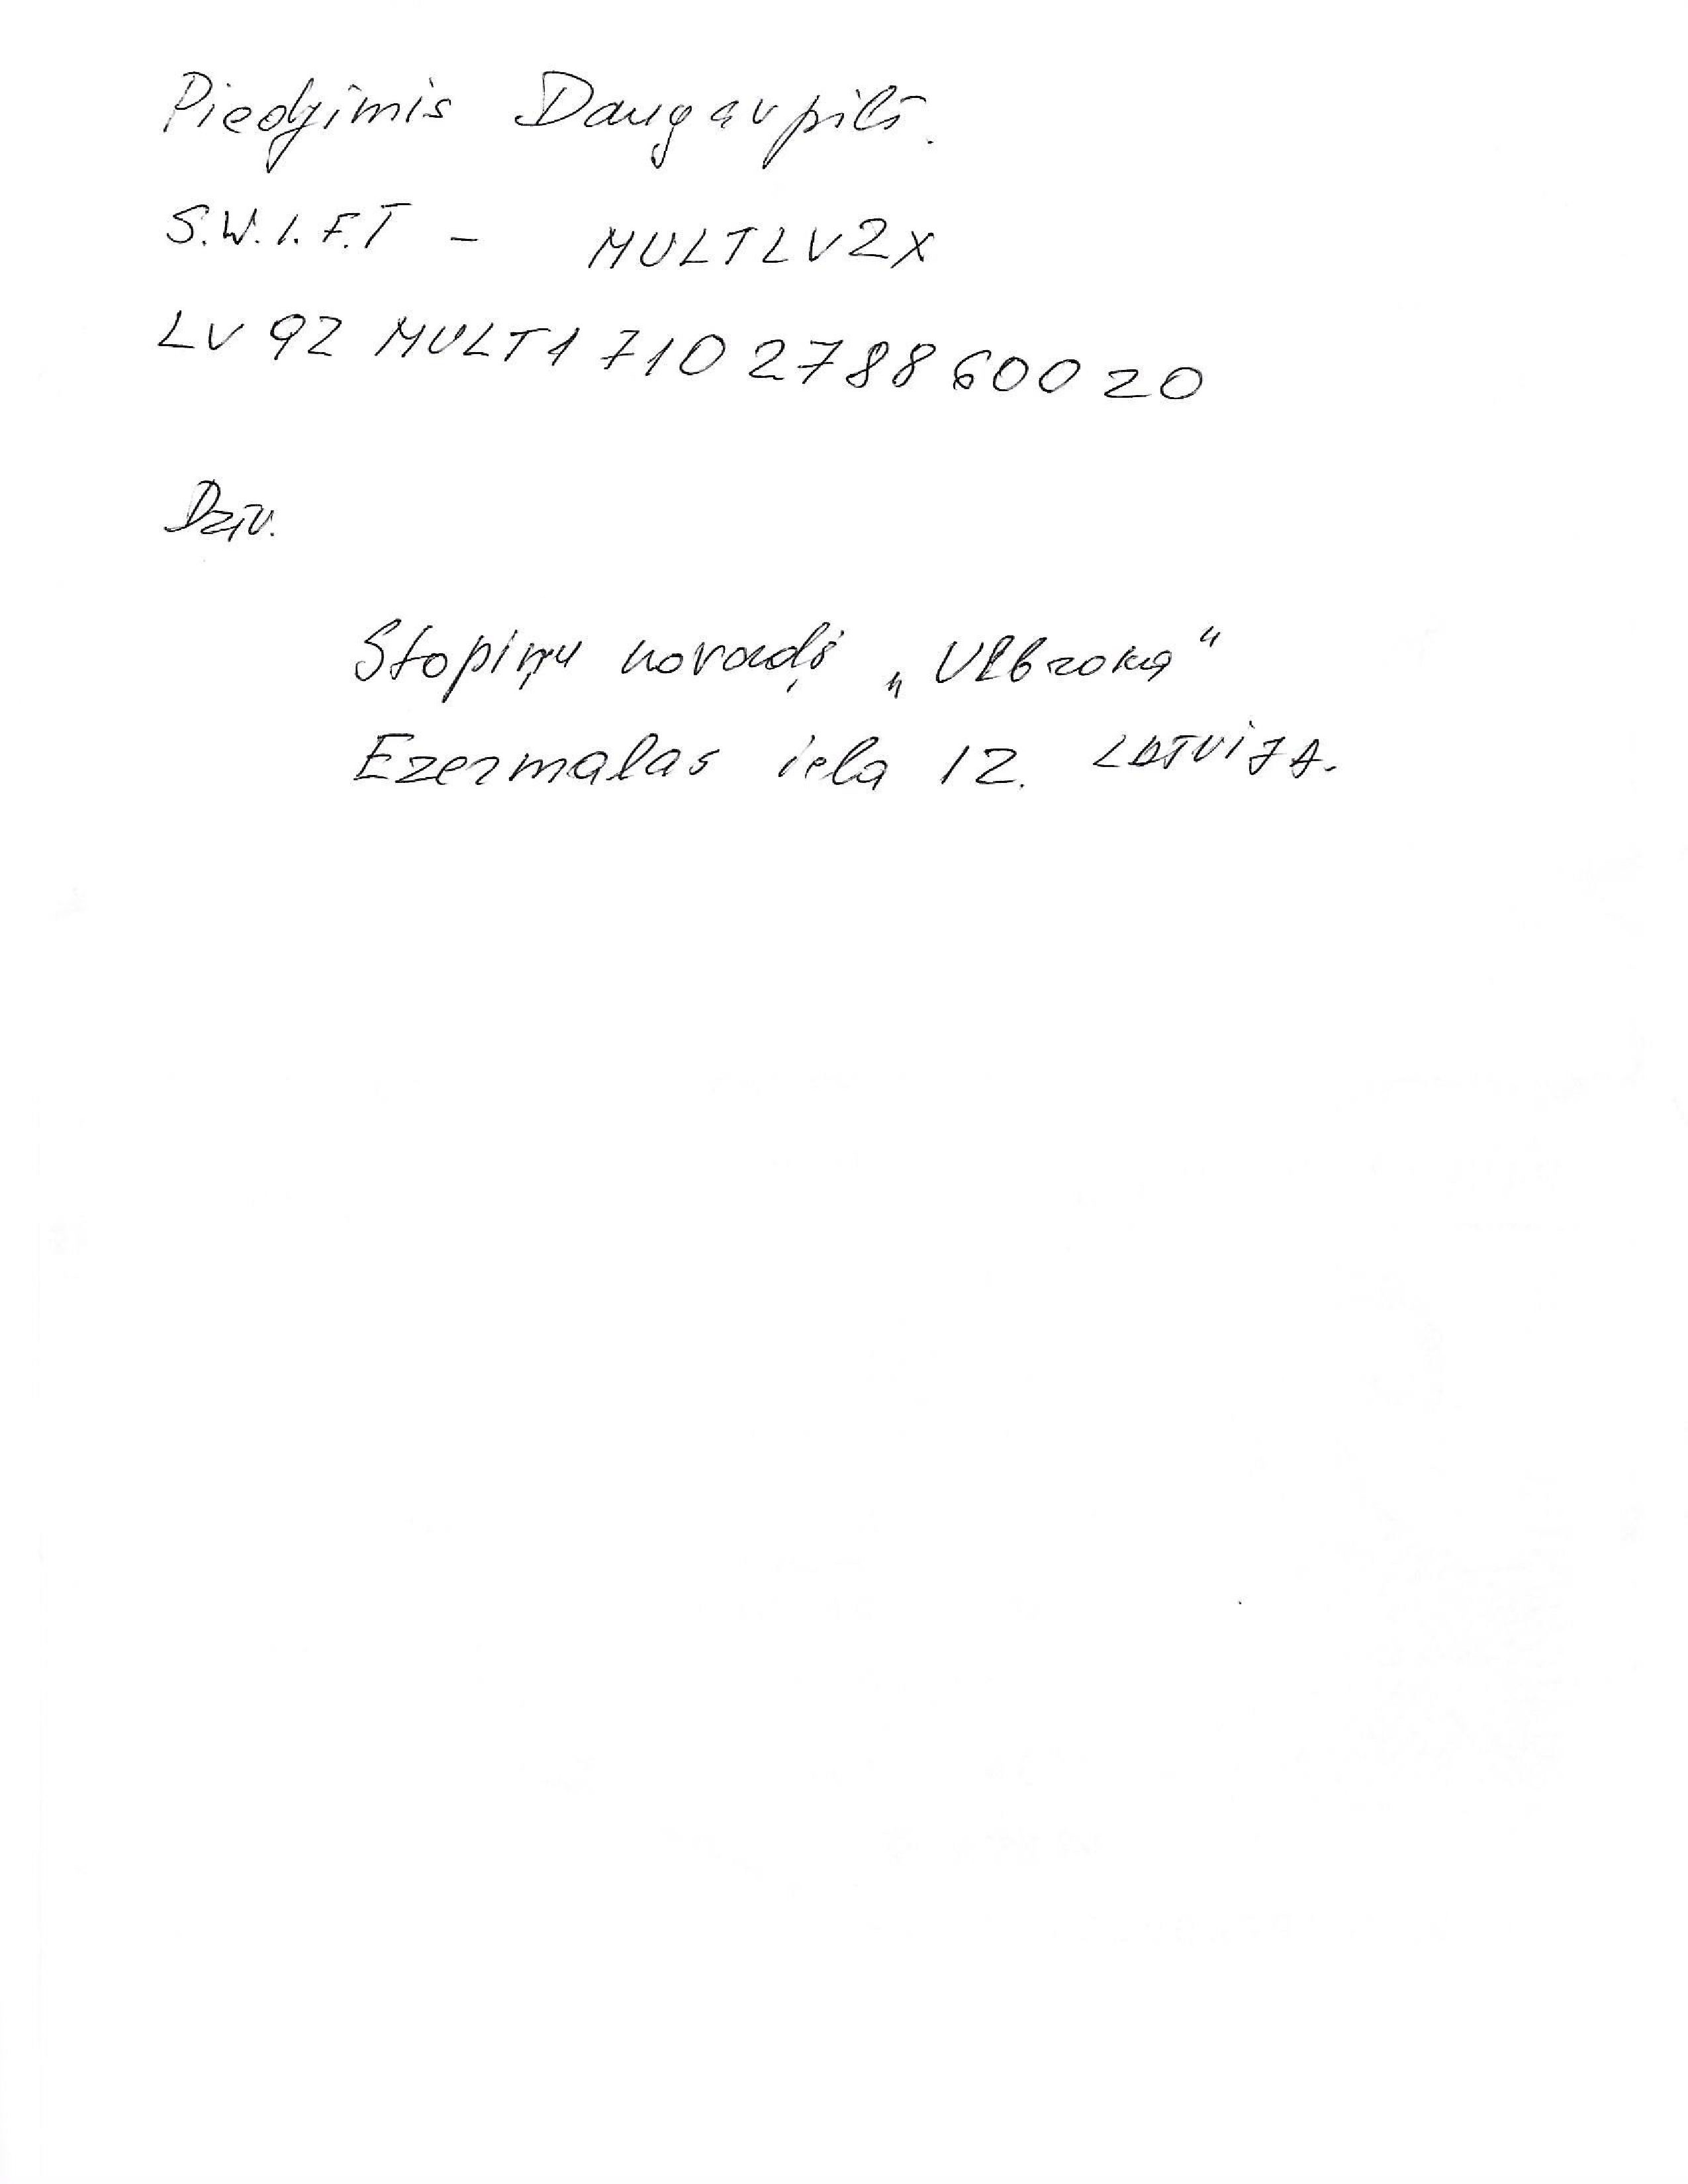 Piedzimis Daugavpilī.
S.W.I.F.T - MULTLV2X
LV 92 MULT1 710 2788 600 20
Dzīv.
Stopiņu novads „Ulbroka“
Ezermalas iela 12. LATVIJA.